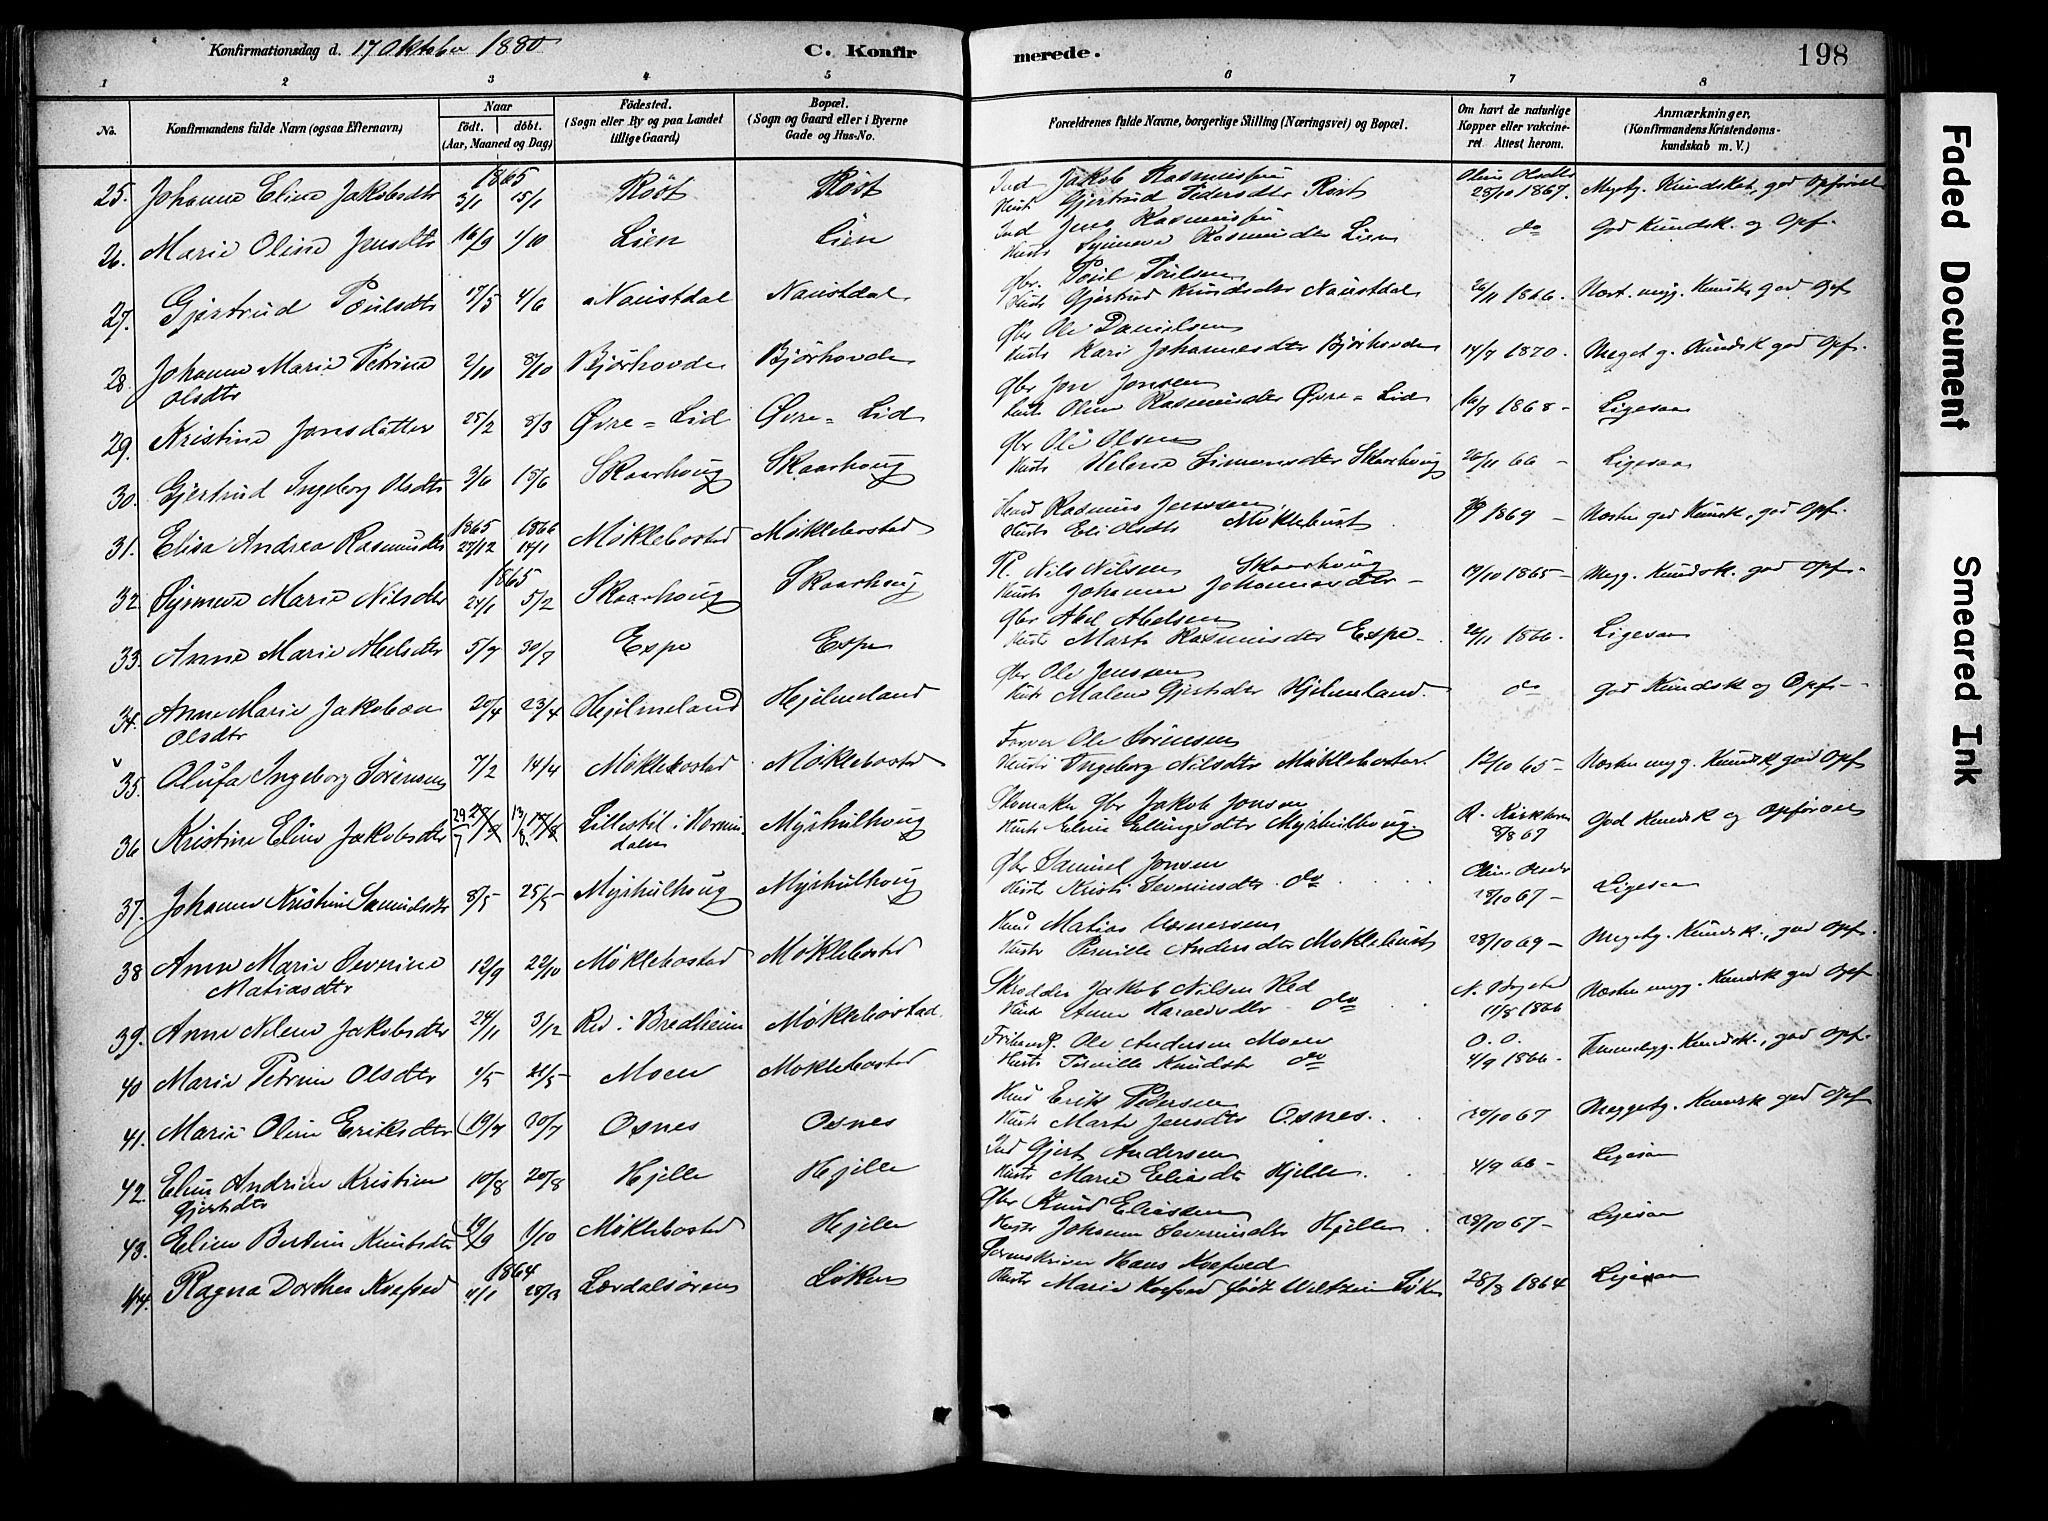 Konfirmationsdag d. 17 Oktober 1880
C. Konfirmerede.
198
1 2 3 4 5 6 7 8
No.
Konfirmandens fulde Navn (ogsaa Efternavn)
Naar
födt. döbt.
(Aar, Maaned og Dag)
Födested.
(Sogn eller By og paa Landet tillige Gaard)
Bopæl.
(Sogn og Gaard eller i Byerne Gade og Hus-No.
Forældrenes fulde Navne, borgerlige Stilling (Næringsvei) og Bopæl.
Om havt de naturlige Kopper eller vakcineret. Attest herom.
Anmærkninger.
(Konfirmandens Kristendomskundskab m. V.)
25. Johanne Eline Jakobsdtr 1865 3/1 15/1 Röst Röst Ind Jakob Rasmussen Hust Gjertrud Pedersdtr Röst Oline Olsdtr 28/10 1867. Megetg. Kundskab, god Opförsel
26. Marie Oline Jensdtr 16/9 1/10 Lien Lien Ind Jens Rasmussen Hust Synneve Rasmusdtr Lien do God Kundsk. og Opf.
27. Gjertrud Poulsdtr 17/5 4/6 Naustdal Naustdal Gbr. Poul Poulsen Hust Gjertrud Knudsdtr Naustdal 26/11 1866. Næst. meg. Kundsk. god Opf
28. Johanne Marie Petrine Olsdtr 2/10 8/10 Bjørhovde Bjørhovde Gbr Ole Danielsen Hust Kari Johannesdtr Bjørhovde 14/7 1870. Meget g. Kundsk god Opf.
29. Kristine Jonsdatter 25/2 8/3 Øvre=Lid Øvre=Lid Gbr Jon Jonsen Hust Oline Rasmusdtr Øvre=Lid 16/9 1868 - Ligesaa
30. Gjertrud Ingeborg Olsdtr 3/6 15/6 Skaarhoug Skaarhoug Gbr Ole Olsen Hust Helene Simonsdtr Skaarhoug 26/11 66 - Ligesaa
31. Elisa Andrea Rasmusdtr 1865 27/12 1866 14/1 Møklebostad Møklebostad Rasmus Jenssen Hust Eli Olsdtr Møklebust 1869 - Næsten god Kundsk., god Opf.
32 Synneve Marie Nilsdtr 1865 24/1 5/2 Skaarhoug Skaarhoug Nils Nilsen Skaarhoug Hust Johanne Johannesdtr - 19/10 1865 - Meg g. Kundsk. god Opf.
33. Anne Marie Abelsdtr 5/7 30/7 Espe Espe Gbr Abel Abelsen Hust Marte Rasmusdtr Espe 26/11 1866. Ligesaa
34. Anne Marie Jakobæa Olsdtr 20/4 23/4 Hejlmeland Hejlmeland Gbr Ole Jenssen Hust Malene Gjertsdtr Hjelmeland. do God Kundsk og Opf -
35. Olufa Ingeborg Sörensen 7/2 14/4 Møklebostad Møklebostad Farver Ole Sörensen Hust Ingeborg Nilsdtr Møklebostad. 12/10 65 - Næsten meg g. Kundsk, god Opf
36. Kristine Eline Jakobsdtr 29/7 13/8 Lillestöl i Hornindalen Myrhulhoug Skomaker Gbr Jakob Jonsen Hust Eline Ellingsdtr Myrhulhoug. R. 8/8 67 God Kundsk og Opförsel
37. Johanne Kristine Samuelsdtr 8/5 25/5 Myrhulhoug Myrhulhoug Gbr Samuel Jonsen Hust Kristi Severinsdtr. do Oline Olsdtr 28/10 67 - Ligesaa
38 Anne Marie Severine Matiasdtr 12/9 22/10 Møklebostad Møklebostad Matias Hust Pernille Andersdtr Møklebust 28/10 69 - Meget g. Kundsk., god Opf.
39. Anne Nilene Jakobsdtr 24/11 3/12 Red i Bredheim Møklebostad. Skrædder Jakob Nilsen Red Hust Anne Haraldsdtr do 11/8 1866 Næsten meg g. Kundsk god Opf.
40 Marie Petrine Olsdtr 4/5 21/5 Moen Møklebostad Ole Andersen Moen Hust Pernille Knudsdtr do O. O. 4/9 1866. Temmelig g. Kundsk., god Opf.
41. Marie Oline Eriksdtr 19/7 30/7 Osnes Osnes Hus Erik Pedersen Hust Marte Jensdtr Osnes. 28/10 67 Meget g. Kundsk god Opf
42. Eline Andrine Kristine Gjertsdtr 10/8 20/8 Hjelle Hjelle Ind Gjert Andersen Hust Marie Eliasdtr Hjelle. 4/9 66 - Ligesaa
43. Eline Bertine Knudsdtr 19/9 1/10 Møklebostad Hjelle Gbr Knud Eliassen Hust Johanne Severinsdtr Hjelle 28/10 67 - Ligesaa
44. Ragna Dorthea Koefoed 1864 4/1 28/3 Lærdalsören Löken Sorenskriver Hans Koefoed Hust Marie Koefoed födt Weltzin Löken 28/8 1864 Ligesaa
Faded Document
Smeared Ink